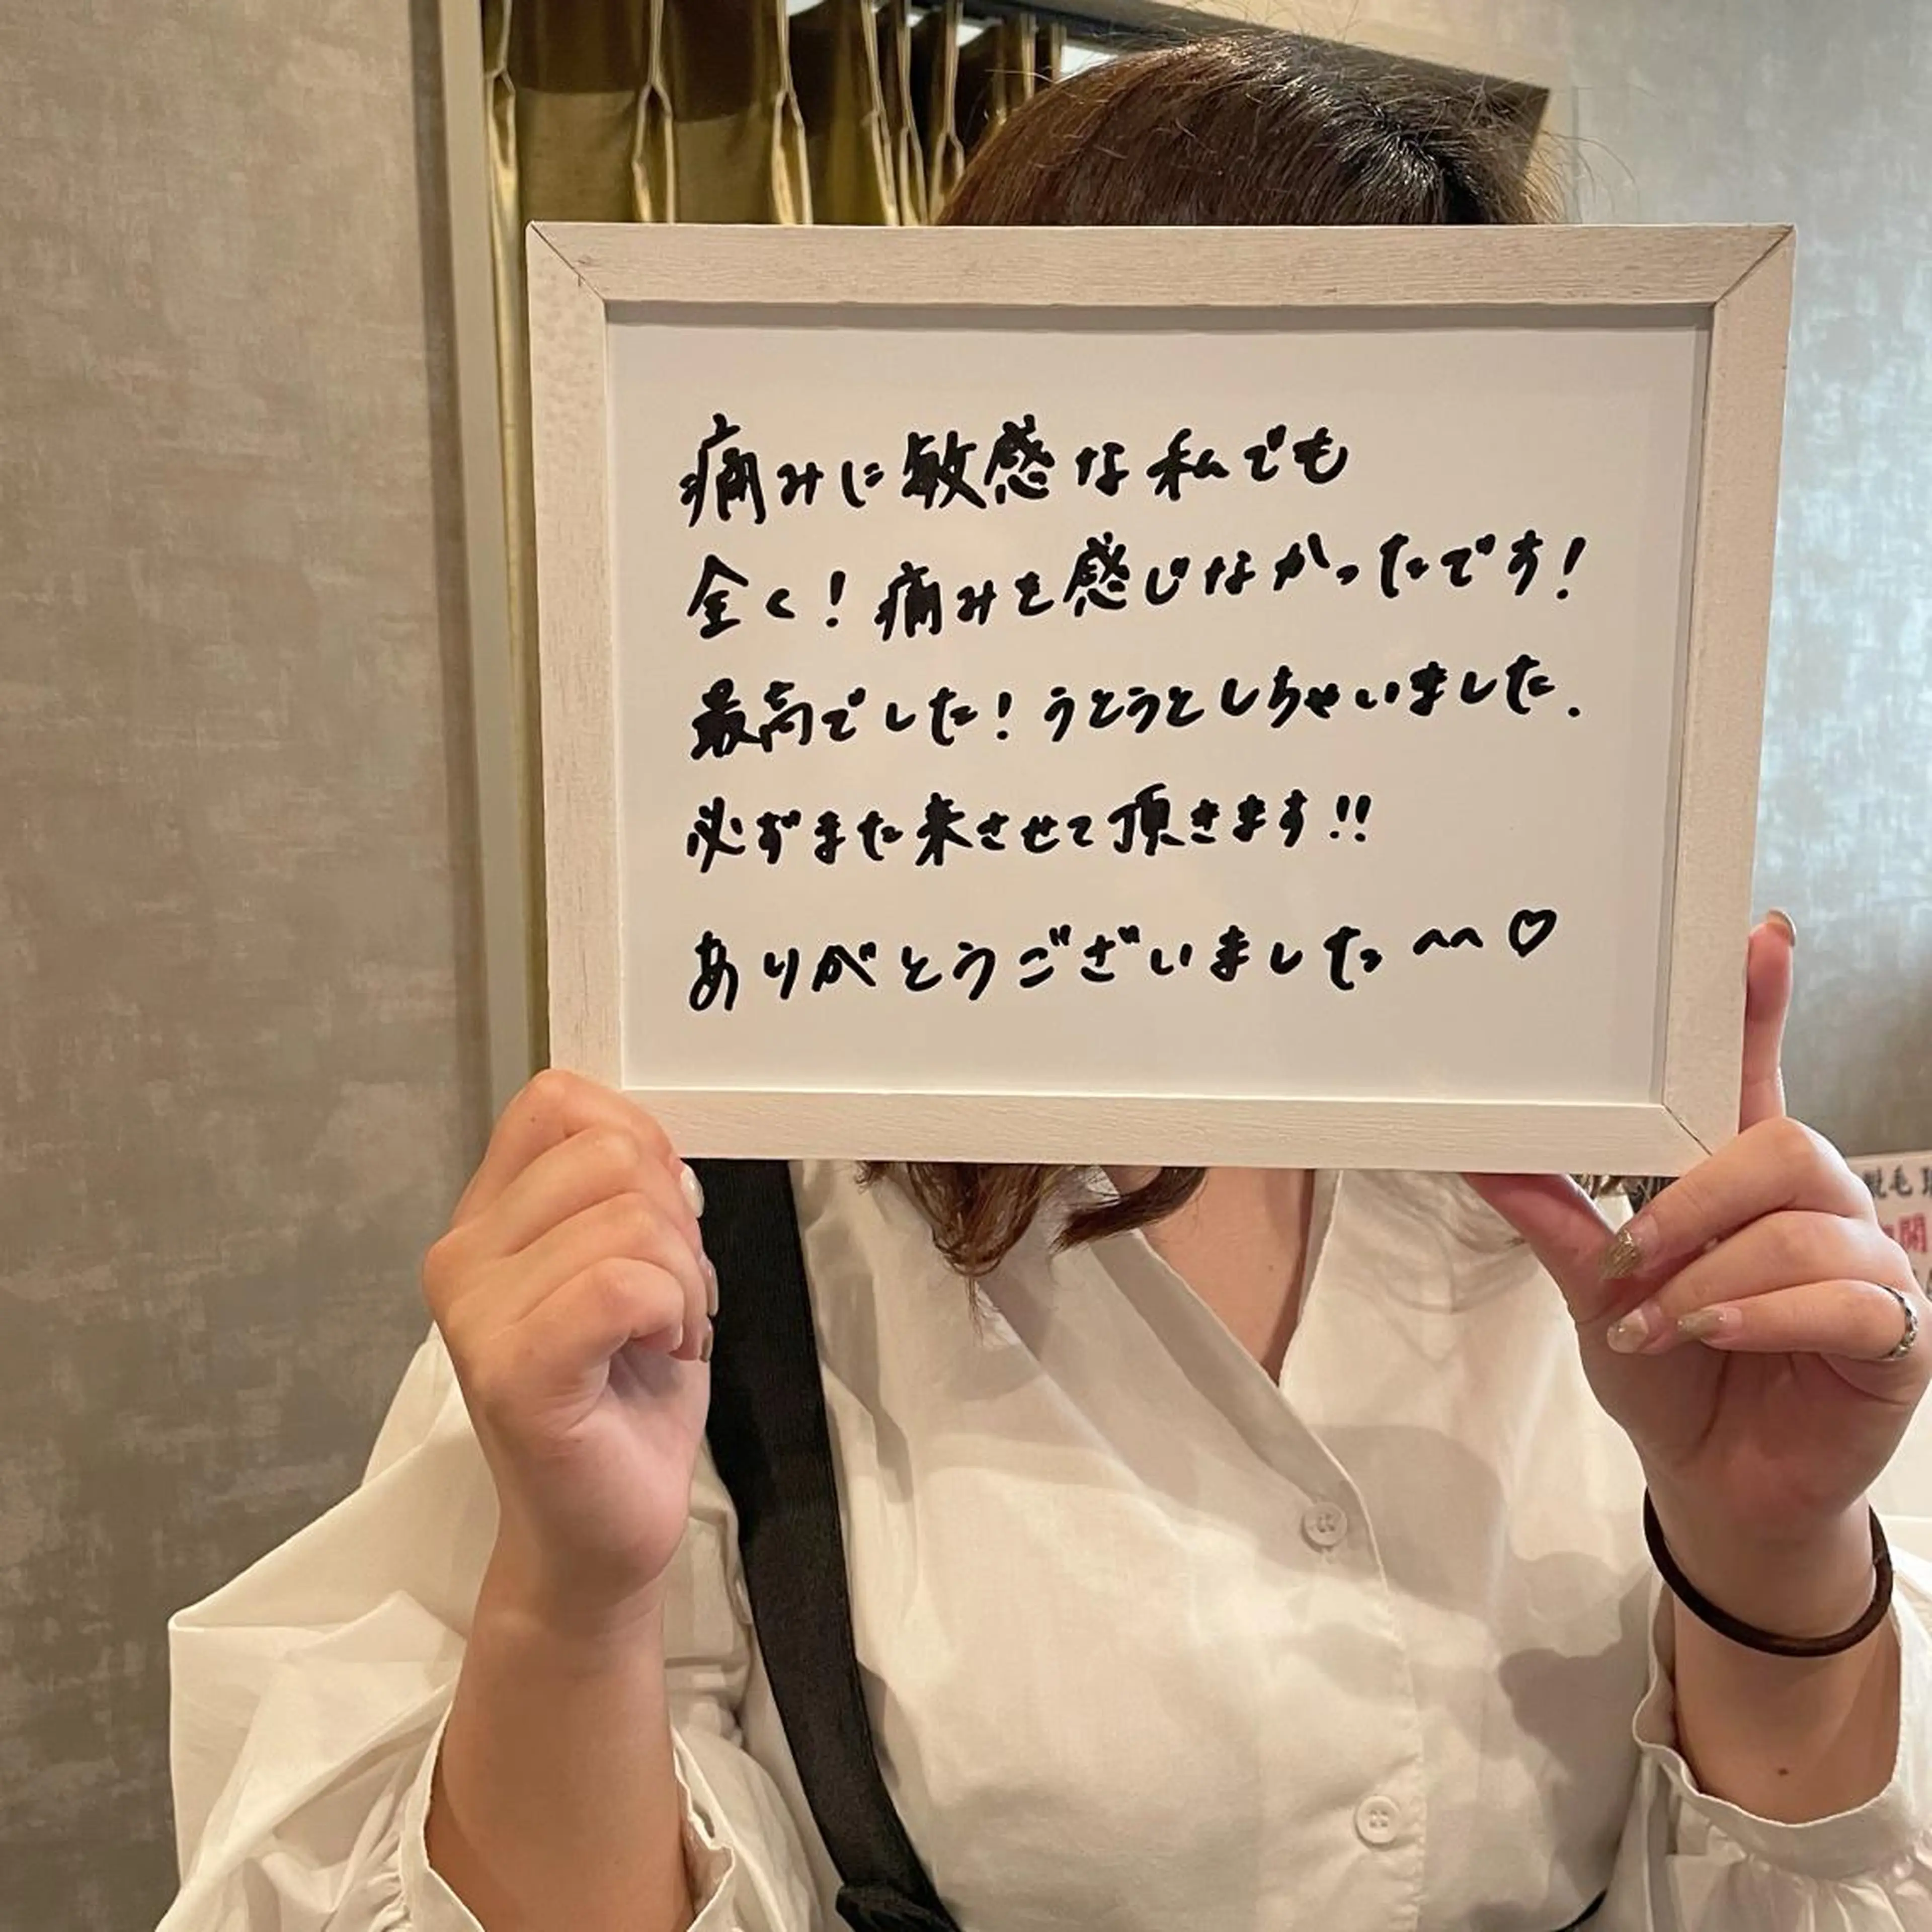 痛みに敏感な私でも
全く！痛みを感じなかったです！
最高でした！うとうとしちゃいました.
必ずまた来させて頂きます!!
ありがとうございました^^♡
脱毛
開